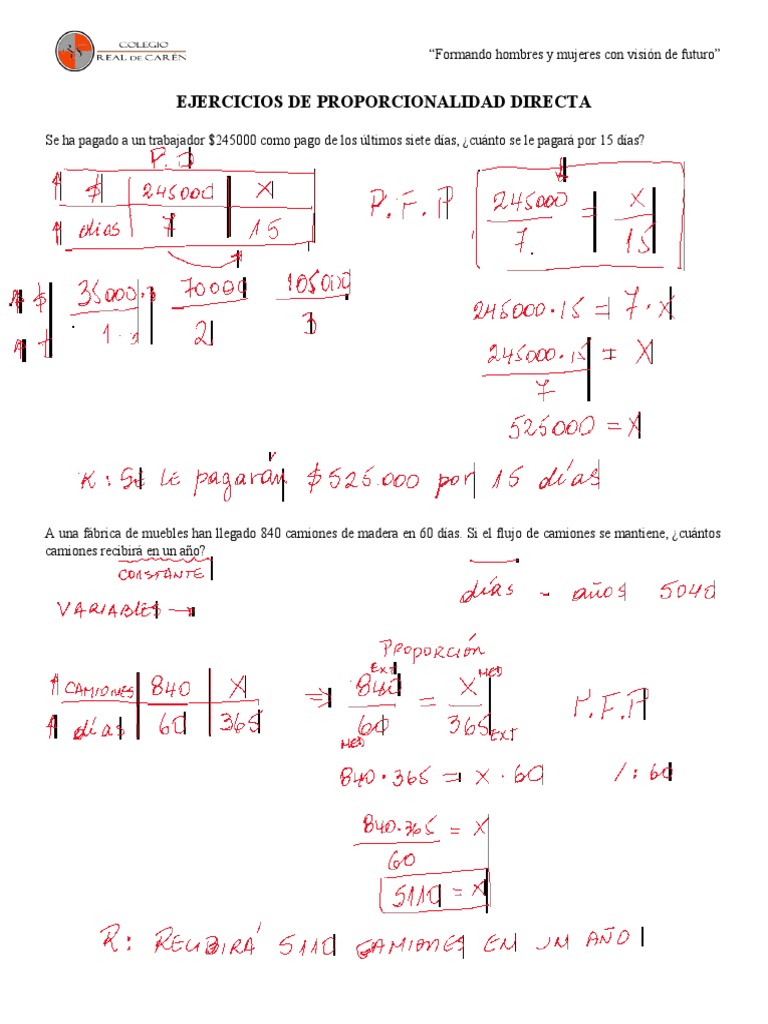 COLEGIO
REAL DE CARÉN
“Formando hombres y mujeres con visión de futuro”
EJERCICIOS DE PROPORCIONALIDAD DIRECTA
Se ha pagado a un trabajador $245000 como pago de los últimos siete días, ¿cuánto se le pagará por 15 días?
P. D
$ | 245000 | X
días | 7 | 15
P.F.P
245000 / 7 = X / 15
$ 35000 70000 105000
1 2 3
245000·15 = 7·X
245000·15 / 7 = X
525000 = X
R: Se le pagarán $525.000 por 15 días
A una fábrica de muebles han llegado 840 camiones de madera en 60 días. Si el flujo de camiones se mantiene, ¿cuántos
camiones recibirá en un año?
CONSTANTE
días - años 5040
VARIABLES →
PROPORCIÓN
↑ CAMIONES | 840 | X
↑ días | 60 | 365
⇒ EXT 840 / 60 MED = X MED / 365 EXT
P.F.P
840·365 = X·60 /:60
840·365 / 60 = X
5110 = X
R: RECIBIRÁ 5110 CAMIONES EN UN AÑO